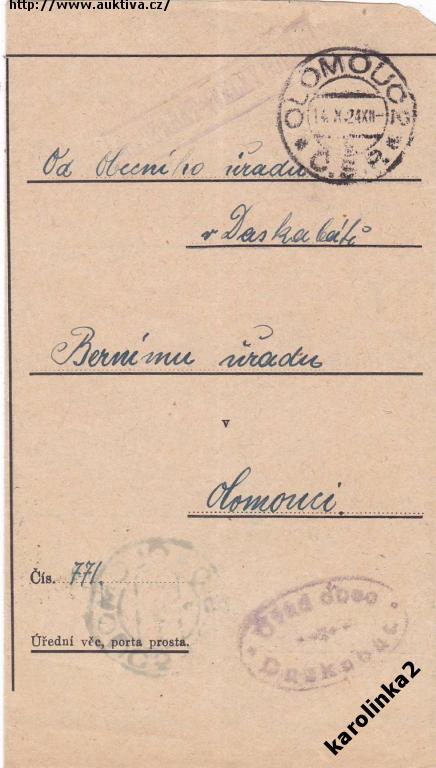 http://www.auktiva.cz/
OLOMOUC 2
Č.S.P.
Od Obecního úřadu
v Daskabátě
Bernímu úřadu
v
Olomouci.
Čís. 771.
Úřední věc, porta prosta.
Úřad obec
Daskabát
karolinka2